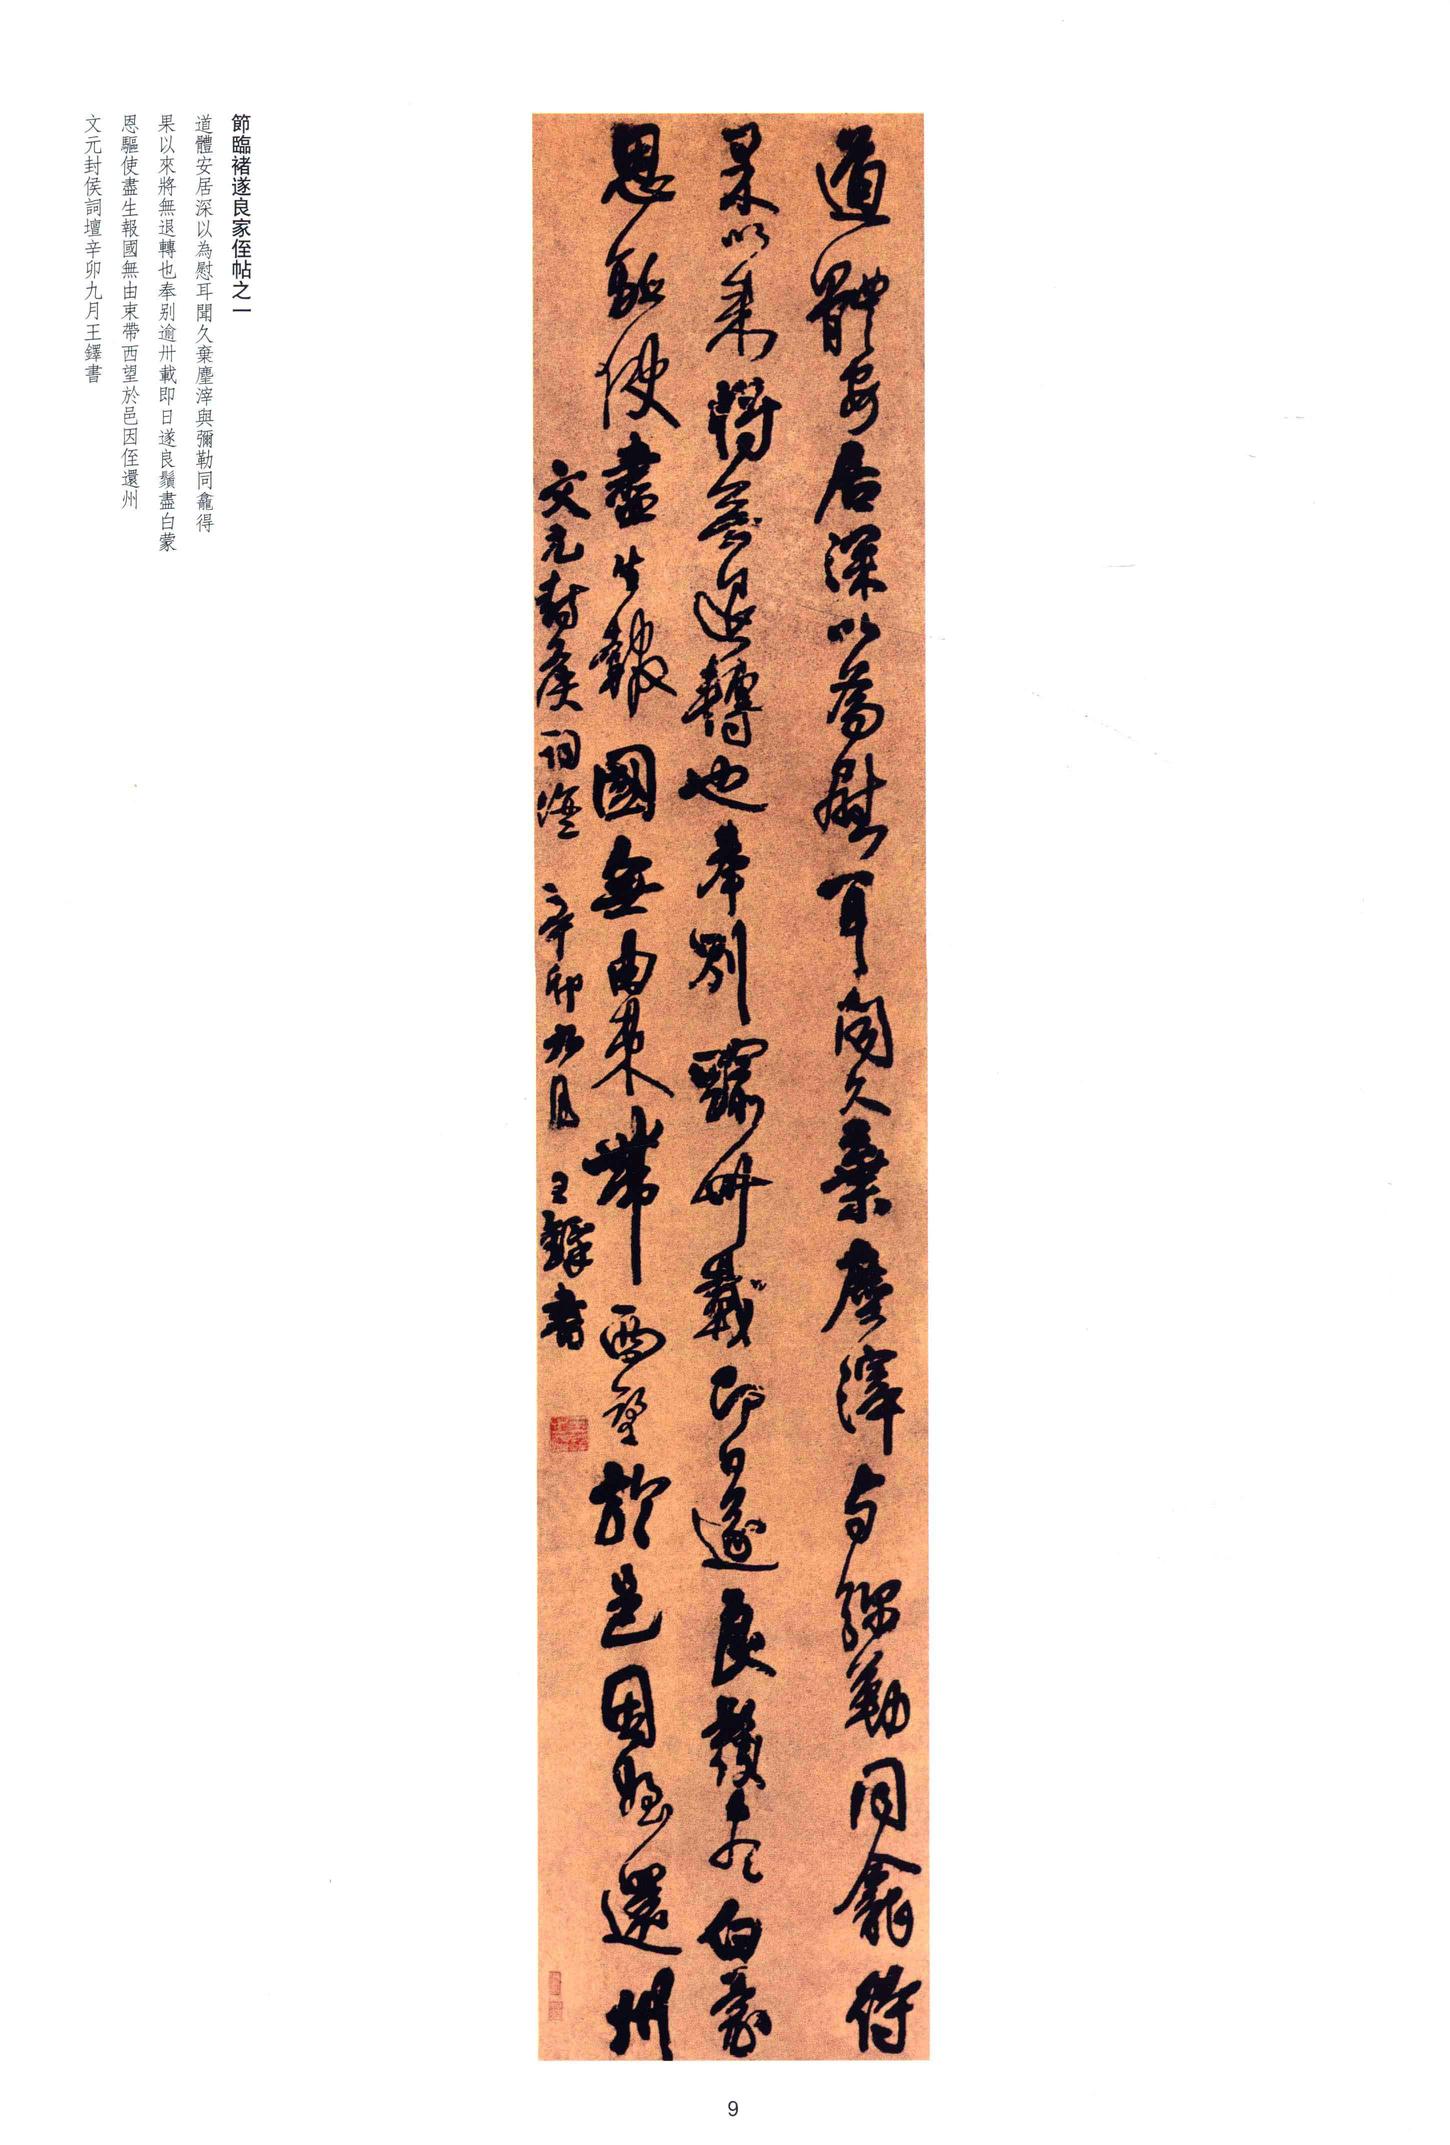 道體安居深以為慰耳聞久棄塵滓與彌勒同龕得
果以來將無退轉也奉别逾卅載即日遂良鬚盡白蒙
恩驅使盡生報國無由束帶西望於邑因姪還州
文元封侯詞壇 辛卯九月 王鐸書
節臨褚遂良家侄帖之一
道體安居深以為慰耳聞久棄塵滓與彌勒同龕得
果以來將無退轉也奉别逾卅載即日遂良鬚盡白蒙
恩驅使盡生報國無由束帶西望於邑因侄還州
文元封侯詞壇辛卯九月王鐸書
9